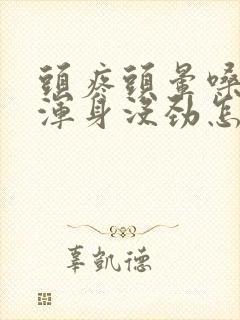 頭疼頭暈嗓
渾身沒勁怎
辜凱德